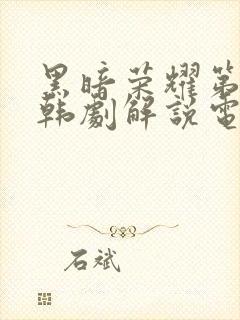 黑暗荣耀第
韩劇解説電
石斌